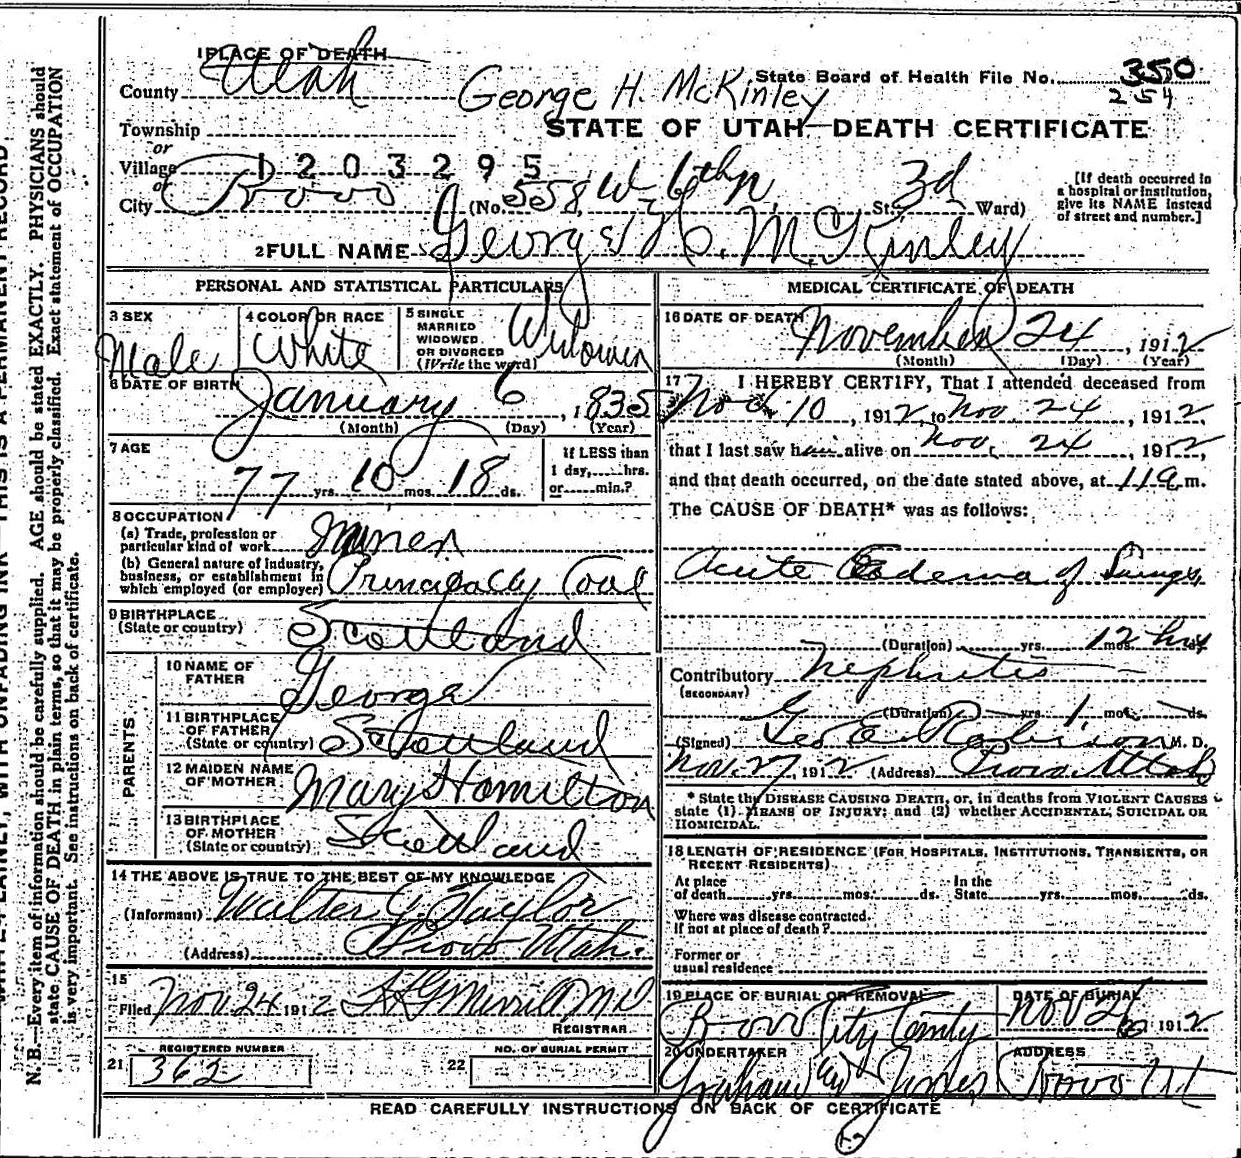 1 PLACE OF DEATH
County Utah
George H. McKinley
State Board of Health File No. 350
254
Township
STATE OF UTAH—DEATH CERTIFICATE
or
Village 1203295
or
City Provo (No. 558 W- 6th N. St. 3d Ward)
[If death occurred in a hospital or institution, give its NAME instead of street and number.]
2 FULL NAME George H. McKinley
PERSONAL AND STATISTICAL PARTICULARS
3 SEX Male
4 COLOR OR RACE White
5 SINGLE MARRIED WIDOWED OR DIVORCED (Write the word) Widower
6 DATE OF BIRTH January 6, 1835
(Month) (Day) (Year)
7 AGE 77 yrs. 10 mos. 18 ds.
If LESS than 1 day, hrs. or min.?
8 OCCUPATION
(a) Trade, profession or particular kind of work Miner
(b) General nature of industry, business, or establishment in which employed (or employer) Principally Coal
9 BIRTHPLACE (State or country) Scotland
PARENTS
10 NAME OF FATHER George
11 BIRTHPLACE OF FATHER (State or country) Scotland
12 MAIDEN NAME OF MOTHER Mary Hamilton
13 BIRTHPLACE OF MOTHER (State or country) Scotland
14 THE ABOVE IS TRUE TO THE BEST OF MY KNOWLEDGE
(Informant) Walter G. Taylor
(Address) Provo Utah.
15
Filed Nov 24 1912 Merrill MD
REGISTRAR
REGISTERED NUMBER
21 362
NO. OF BURIAL PERMIT
22
MEDICAL CERTIFICATE OF DEATH
16 DATE OF DEATH November 24, 1912
(Month) (Day) (Year)
17 I HEREBY CERTIFY, That I attended deceased from
Nov. 10, 1912, to Nov. 24, 1912,
that I last saw him alive on Nov. 24, 1912,
and that death occurred, on the date stated above, at 11 a m.
The CAUSE OF DEATH* was as follows:
Acute Oedema of Lungs,
(Duration) yrs. mos. 12 hrs ds.
Contributory Nephritis
(SECONDARY)
(Duration) yrs. 1 mos. ds.
(Signed) Geo E Robison M. D.
Nov. 27, 1912 (Address) Provo Utah
* State the DISEASE CAUSING DEATH, or, in deaths from VIOLENT CAUSES
state (1) MEANS OF INJURY; and (2) whether ACCIDENTAL, SUICIDAL OR
HOMICIDAL.
18 LENGTH OF RESIDENCE (FOR HOSPITALS, INSTITUTIONS, TRANSIENTS, OR RECENT RESIDENTS)
At place of death yrs. mos. ds. In the State yrs. mos. ds.
Where was disease contracted.
If not at place of death?
Former or usual residence
19 PLACE OF BURIAL OR REMOVAL Provo City
DATE OF BURIAL Nov 26 1912
20 UNDERTAKER Graham and Jones
ADDRESS Provo Ut
READ CAREFULLY INSTRUCTIONS ON BACK OF CERTIFICATE
THIS IS A PERMANENT RECORD.
WITH UNFADING INK
N. B.—Every item of information should be carefully supplied. AGE should be stated EXACTLY. PHYSICIANS should
state CAUSE OF DEATH in plain terms, so that it may be properly classified. Exact statement of OCCUPATION
is very important. See instructions on back of certificate.